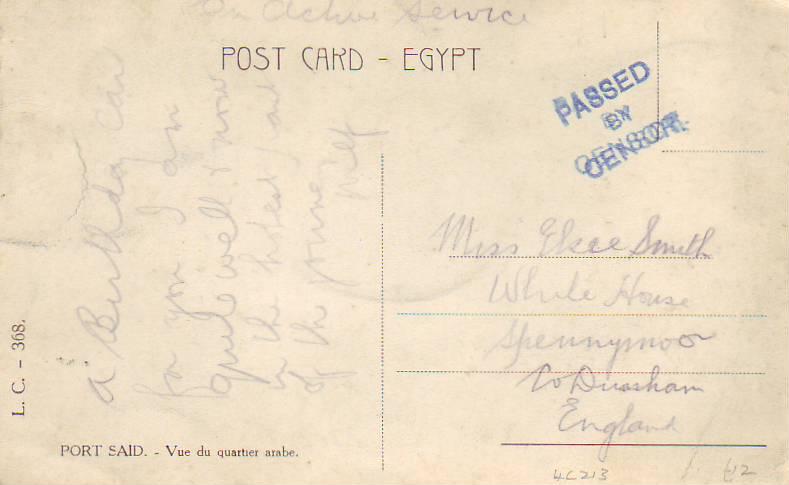 On Active Service
POST CARD - EGYPT
PASSED
BY
CENSOR.
A Birthday Card
for you I am
quite well & now
in the hotest part
of the
Miss Elsie Smith
White House
Spennymoor
Co Durham
England
L. C. - 368.
PORT SAID. - Vue du quartier arabe.
4C213
£12